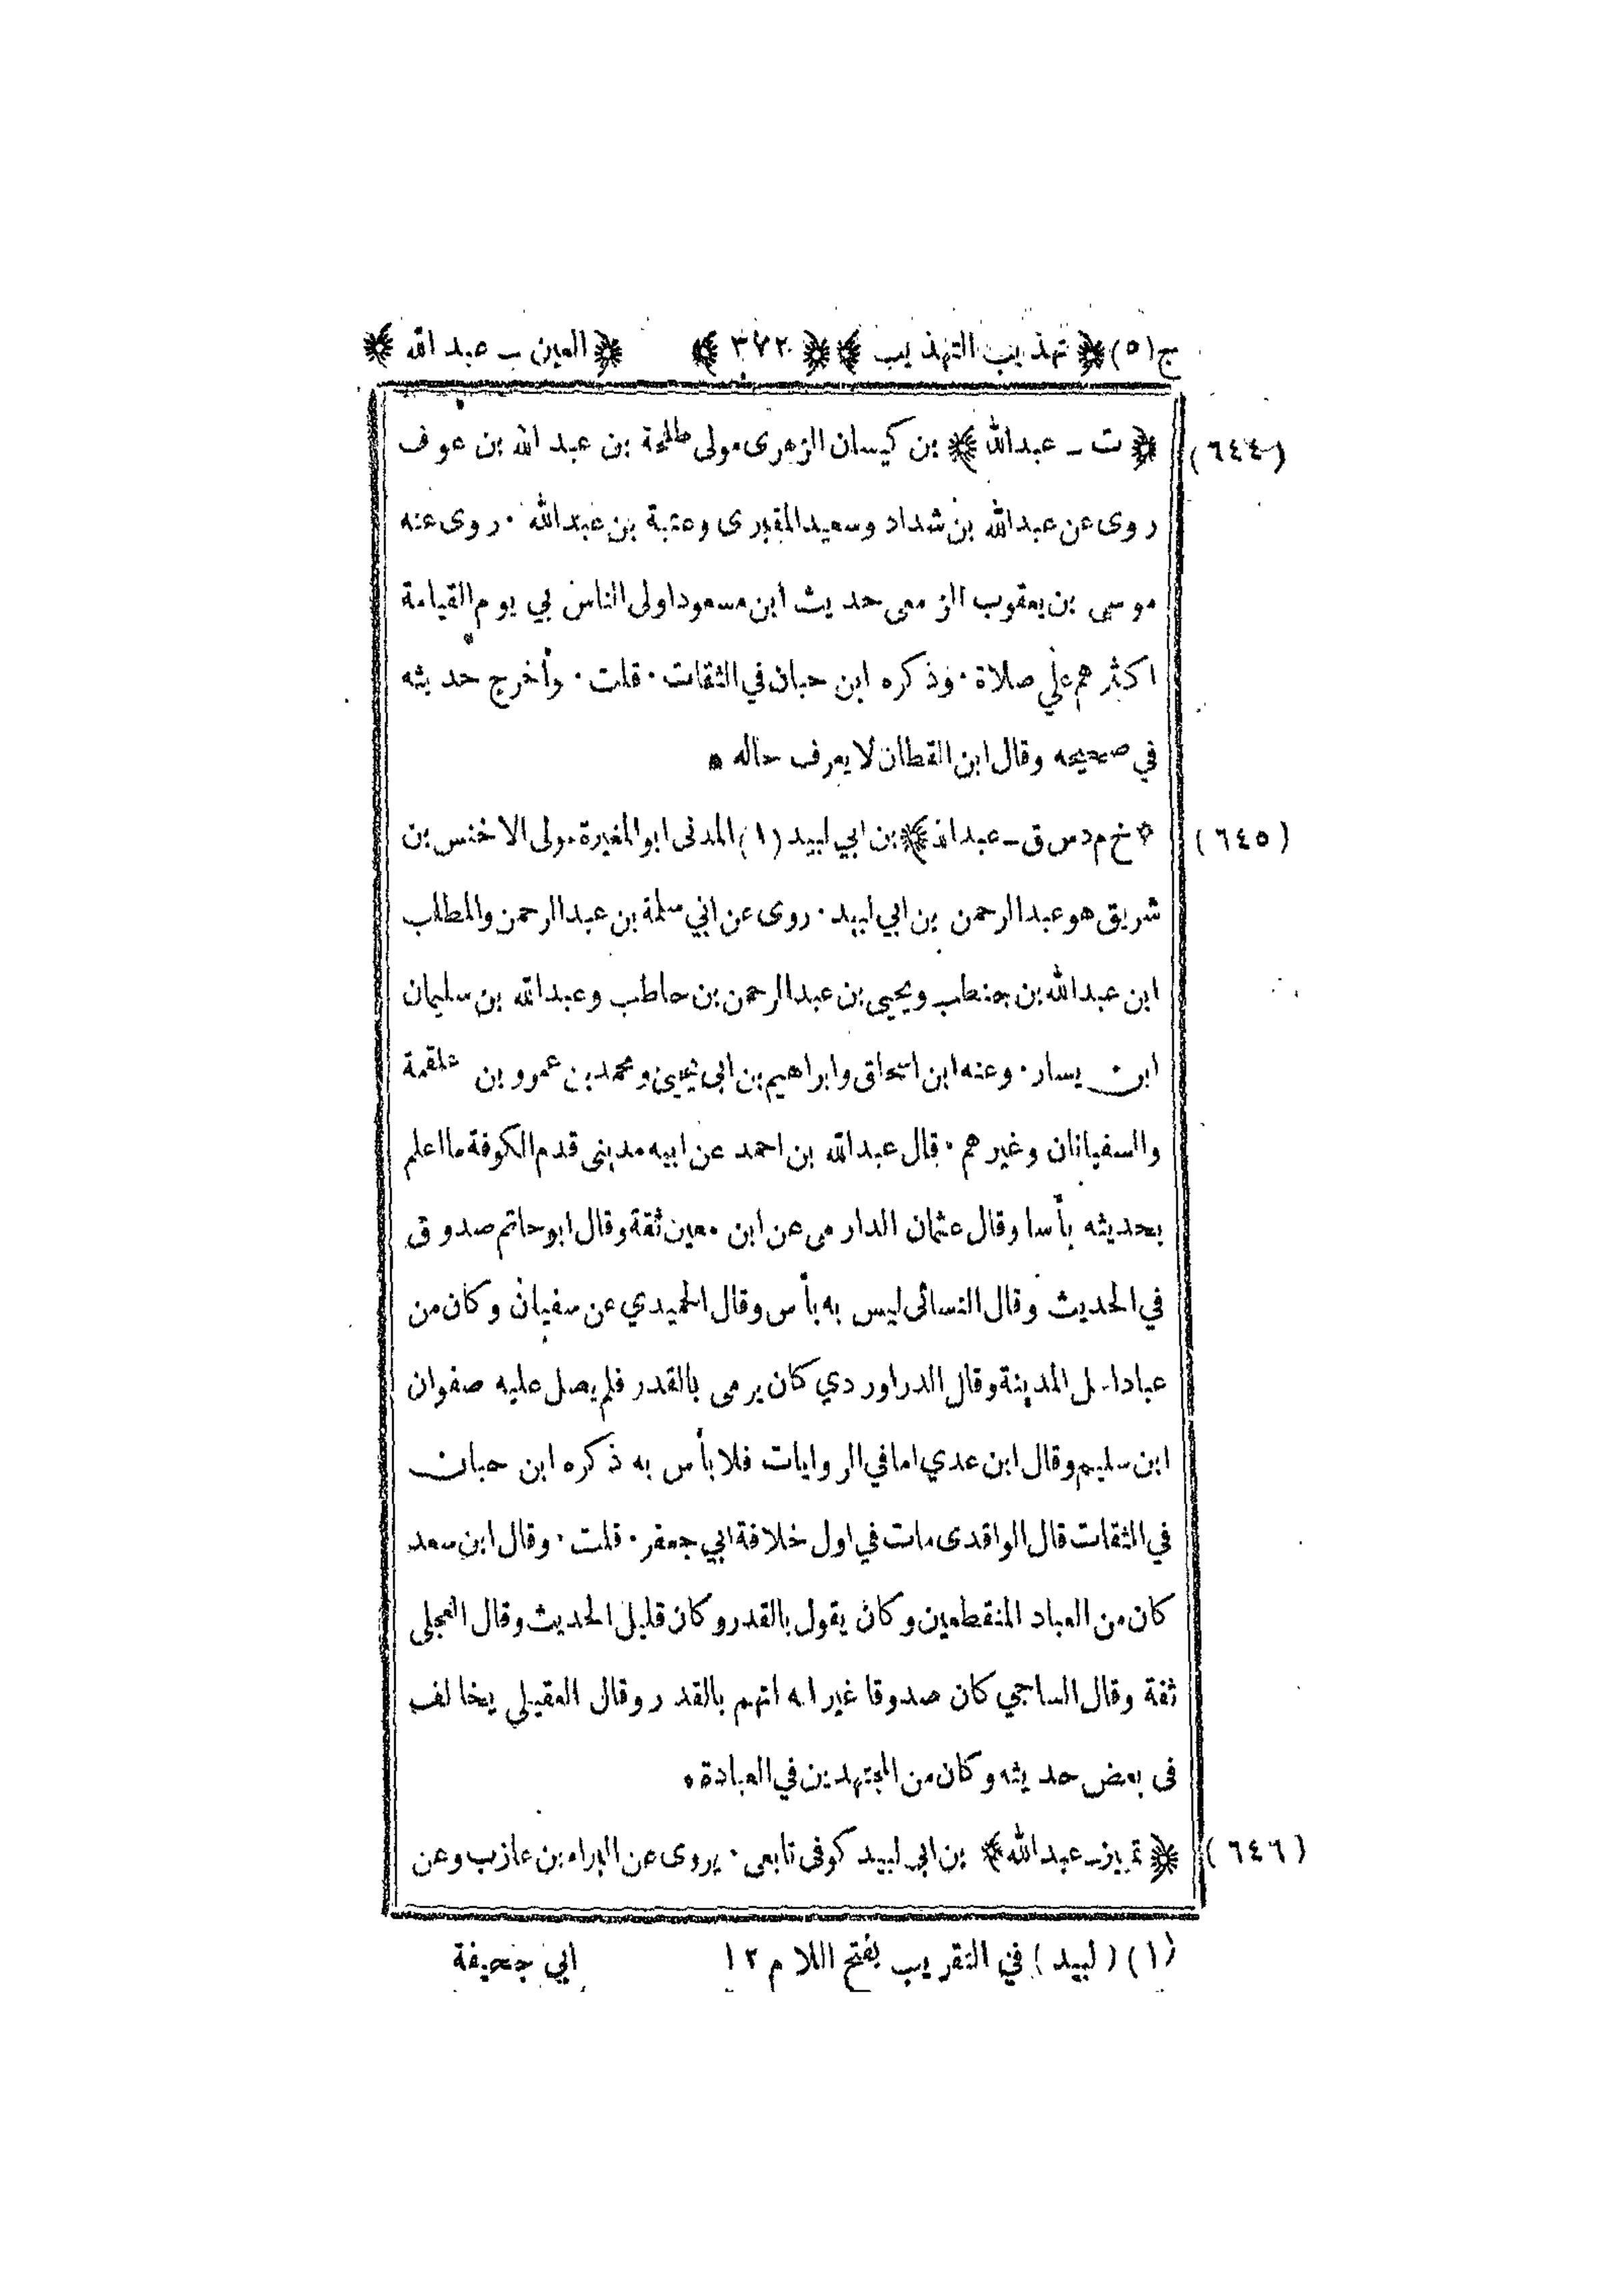 ج(٥) ﴿ تهذيب التهذيب ﴾ ﴿ ٣٧٢ ﴾ ﴿ العين - عبد الله ﴾
(٦٤٤) ﴿ ت - عبدالله ﴾ بن كيسان الزهرى مولى طلحة بن عبد الله بن عوف
روى عن عبدالله بن شداد وسعيد المقبرى وعتبة بن عبدالله · روى عنه
موسى بن يعقوب الزمعى حديث ابن مسعود اولى الناس بي يوم القيامة
اكثرهم علي صلاة · وذكره ابن حبان في الثقات · قلت · وأخرج حديثه
في صحيحه وقال ابن القطان لا يعرف حاله *
(٦٤٥) * خ م د س ق - عبدالله ﴾ بن ابي لبيد (١) المدنى ابو المغيرة مولى الاخنس بن
شريق هو عبدالرحمن بن ابي لبيد · روى عن ابي سلمة بن عبدالرحمن والمطلب
ابن عبدالله بن حنطب ويحيى بن عبدالرحمن بن حاطب وعبدالله بن سليمان
ابن يسار · وعنه ابن اسحاق وابراهيم بن ابى يحيى ومحمد بن عمرو بن علقمة
والسفيانان وغيرهم · قال عبدالله بن احمد عن ابيه مدينى قدم الكوفة ما اعلم
بحديثه بأسا وقال عثمان الدارمى عن ابن معين ثقة وقال ابو حاتم صدوق
في الحديث وقال النسائى ليس به بأس وقال الحميدي عن سفيان وكان من
عباد اهل المدينة وقال الدراوردي كان يرمى بالقدر فلم يصل عليه صفوان
ابن سليم وقال ابن عدي اما في الروايات فلا بأس به ذكره ابن حبان
في الثقات قال الواقدى مات في اول خلافة ابي جعفر · قلت · وقال ابن سعد
كان من العباد المنقطعين وكان يقول بالقدر وكان قليل الحديث وقال العجلى
ثقة وقال الساجي كان صدوقا غير انه اتهم بالقدر وقال العقيلي يخالف
فى بعض حديثه وكان من المجتهدين في العبادة *
(٦٤٦) ﴿ تمييز - عبدالله ﴾ بن ابي لبيد كوفى تابعى · يروى عن البراء بن عازب وعن
(١) (لبيد) في التقريب بفتح اللام ١٢ ابي جحيفة